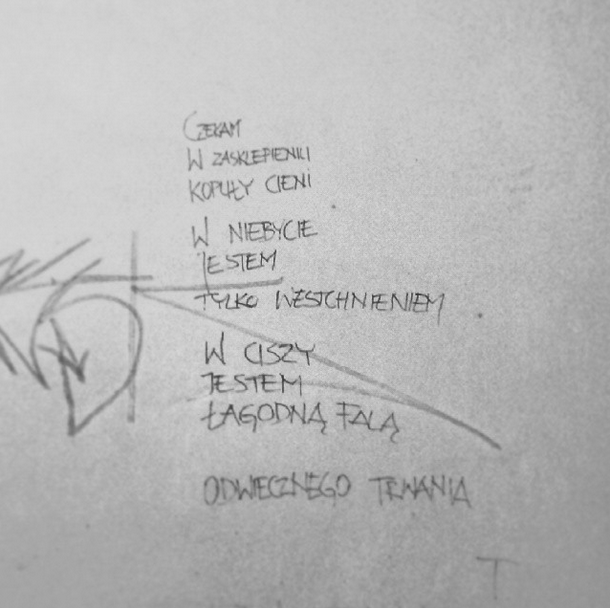 CZEKAM
W ZASKLEPIENIU
KOPUŁY CIENI
W NIEBYCIE
JESTEM
TYLKO WESTCHNIENIEM
W CISZY
JESTEM
ŁAGODNĄ FALĄ
ODWIECZNEGO TRWANIA
T